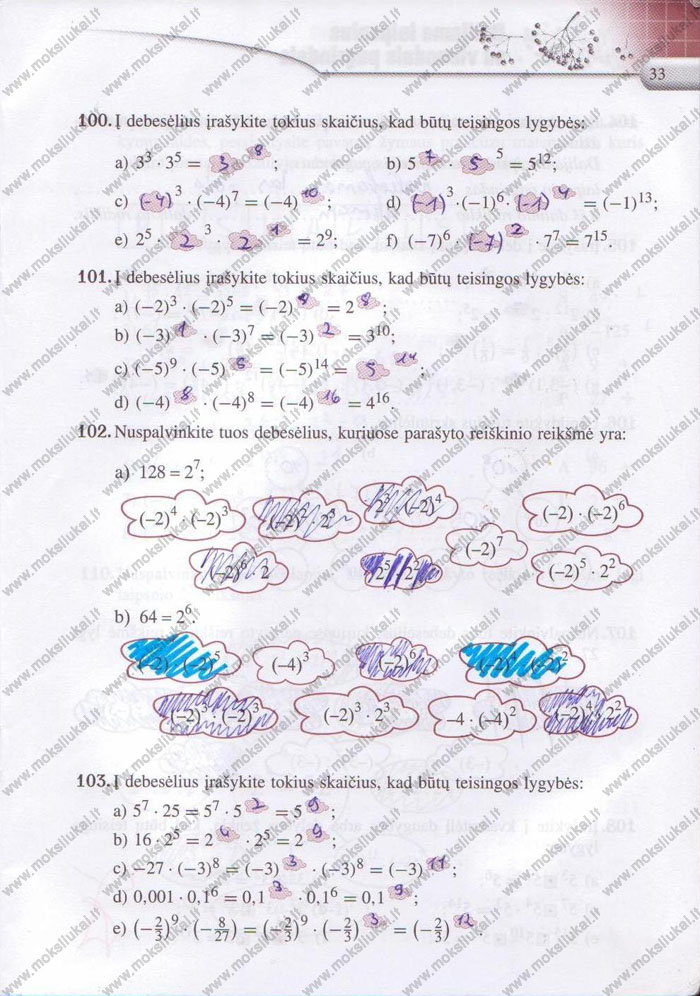 33
100. Į debesėlius įrašykite tokius skaičius, kad būtų teisingos lygybės:
a) 3³ · 3⁵ = 3⁸; b) 5⁷ · 5⁵ = 5¹²;
c) (-4)³ · (−4)⁷ = (−4)¹⁰; d) (-1)³ · (−1)⁶ · (-1)⁴ = (−1)¹³;
e) 2⁵ · 2³ · 2¹ = 2⁹; f) (−7)⁶ · (-7)² · 7⁷ = 7¹⁵.
101. Į debesėlius įrašykite tokius skaičius, kad būtų teisingos lygybės:
a) (−2)³ · (−2)⁵ = (−2)⁸ = 2⁸;
b) (−3)¹ · (−3)⁷ = (−3)² = 3¹⁰;
c) (−5)⁹ · (−5)⁵ = (−5)¹⁴ = 5¹⁴;
d) (−4)⁸ · (−4)⁸ = (−4)¹⁶ = 4¹⁶.
102. Nuspalvinkite tuos debesėlius, kuriuose parašyto reiškinio reikšmė yra:
a) 128 = 2⁷;
(−2)⁴ · (−2)³ 2³ · (−2)⁴ (−2) · (−2)⁶
(−2)⁷
(−2)⁶ · 2 2⁵ · 2² (−2)⁵ · 2²
b) 64 = 2⁶.
(−4)³ (−2)⁶
(−2)³ · (−2)³ (−2)³ · 2³ −4 · (−4)² (−2)⁴ · 2²
103. Į debesėlius įrašykite tokius skaičius, kad būtų teisingos lygybės:
a) 5⁷ · 25 = 5⁷ · 5² = 5⁹;
b) 16 · 2⁵ = 2⁴ · 2⁵ = 2⁹;
c) −27 · (−3)⁸ = (−3)³ · (−3)⁸ = (−3)¹¹;
d) 0,001 · 0,1⁶ = 0,1³ · 0,1⁶ = 0,1⁹;
e) (−2/3)⁹ · (−8/27) = (−2/3)⁹ · (−2/3)³ = (−2/3)¹².
www.moksliukai.lt